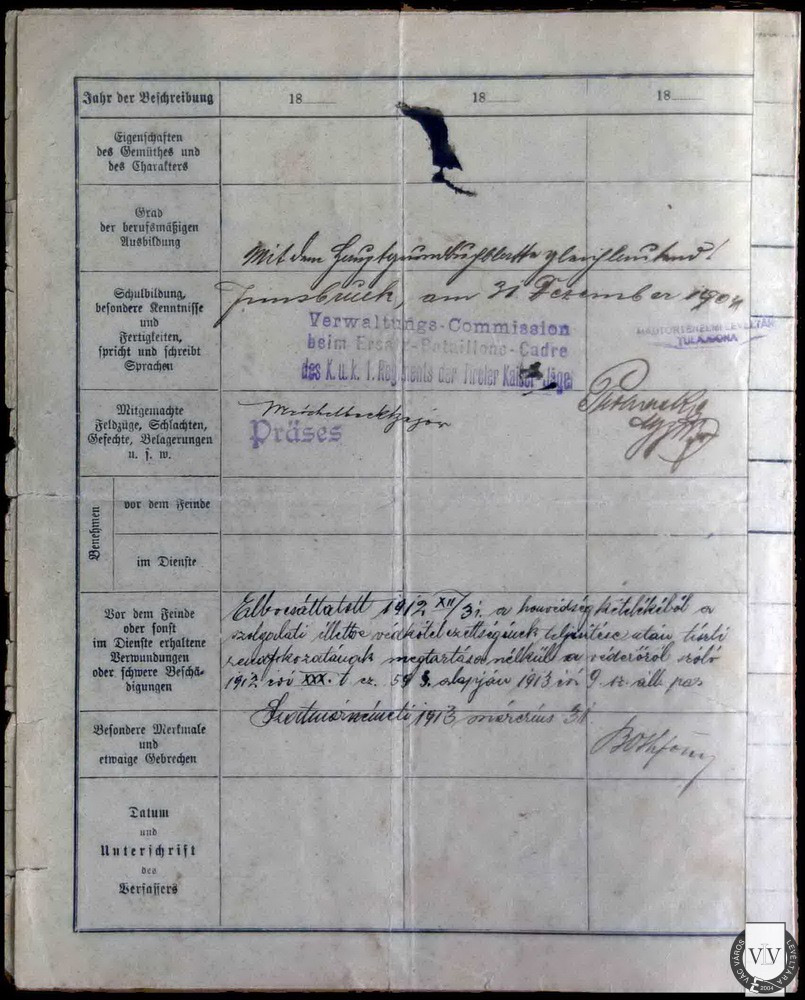 Jahr der Beschreibung 18 18 18
Eigenschaften
des Gemüthes und
des Charakters
Grad
der berufsmäßigen
Ausbildung
Mit dem Hauptgrundbuchblatte gleichlautend!
Schulbildung,
besondere Kenntnisse
und
Fertigkeiten,
spricht und schreibt
Sprachen
Innsbruck, am 31 Dezember 1904
Verwaltungs-Commission
beim Ersatz-Bataillons-Cadre
des K. u. k. 1. Regiments der Tiroler Kaiser-Jäger
HADTÖRTÉNELMI LEVÉLTÁR
TULAJDONA
Mitgemachte
Feldzüge, Schlachten,
Gefechte, Belagerungen
u. s. w.
Präses
Benehmen
vor dem Feinde
im Dienste
Vor dem Feinde
oder sonst
im Dienste erhaltene
Verwundungen
oder schwere Beschä-
digungen
Elbocsáttatott 1912 XII/31. a honvédség kötelékéből a
szolgálati illetve védkötelezettségének teljesítése után, tiszti
rendfokozatának megtartása nélkül a véderőről szóló
1912. évi XXX. t. cz. 59 §. alapján 1913 évi 9. sz. áll. par.
Szatmárnémeti, 1913 március 31.
Besondere Merkmale
und
etwaige Gebrechen
Datum
und
Unterschrift
des
Verfassers
VÁG VÁROS LEVÉLTÁRA
VLV
2004